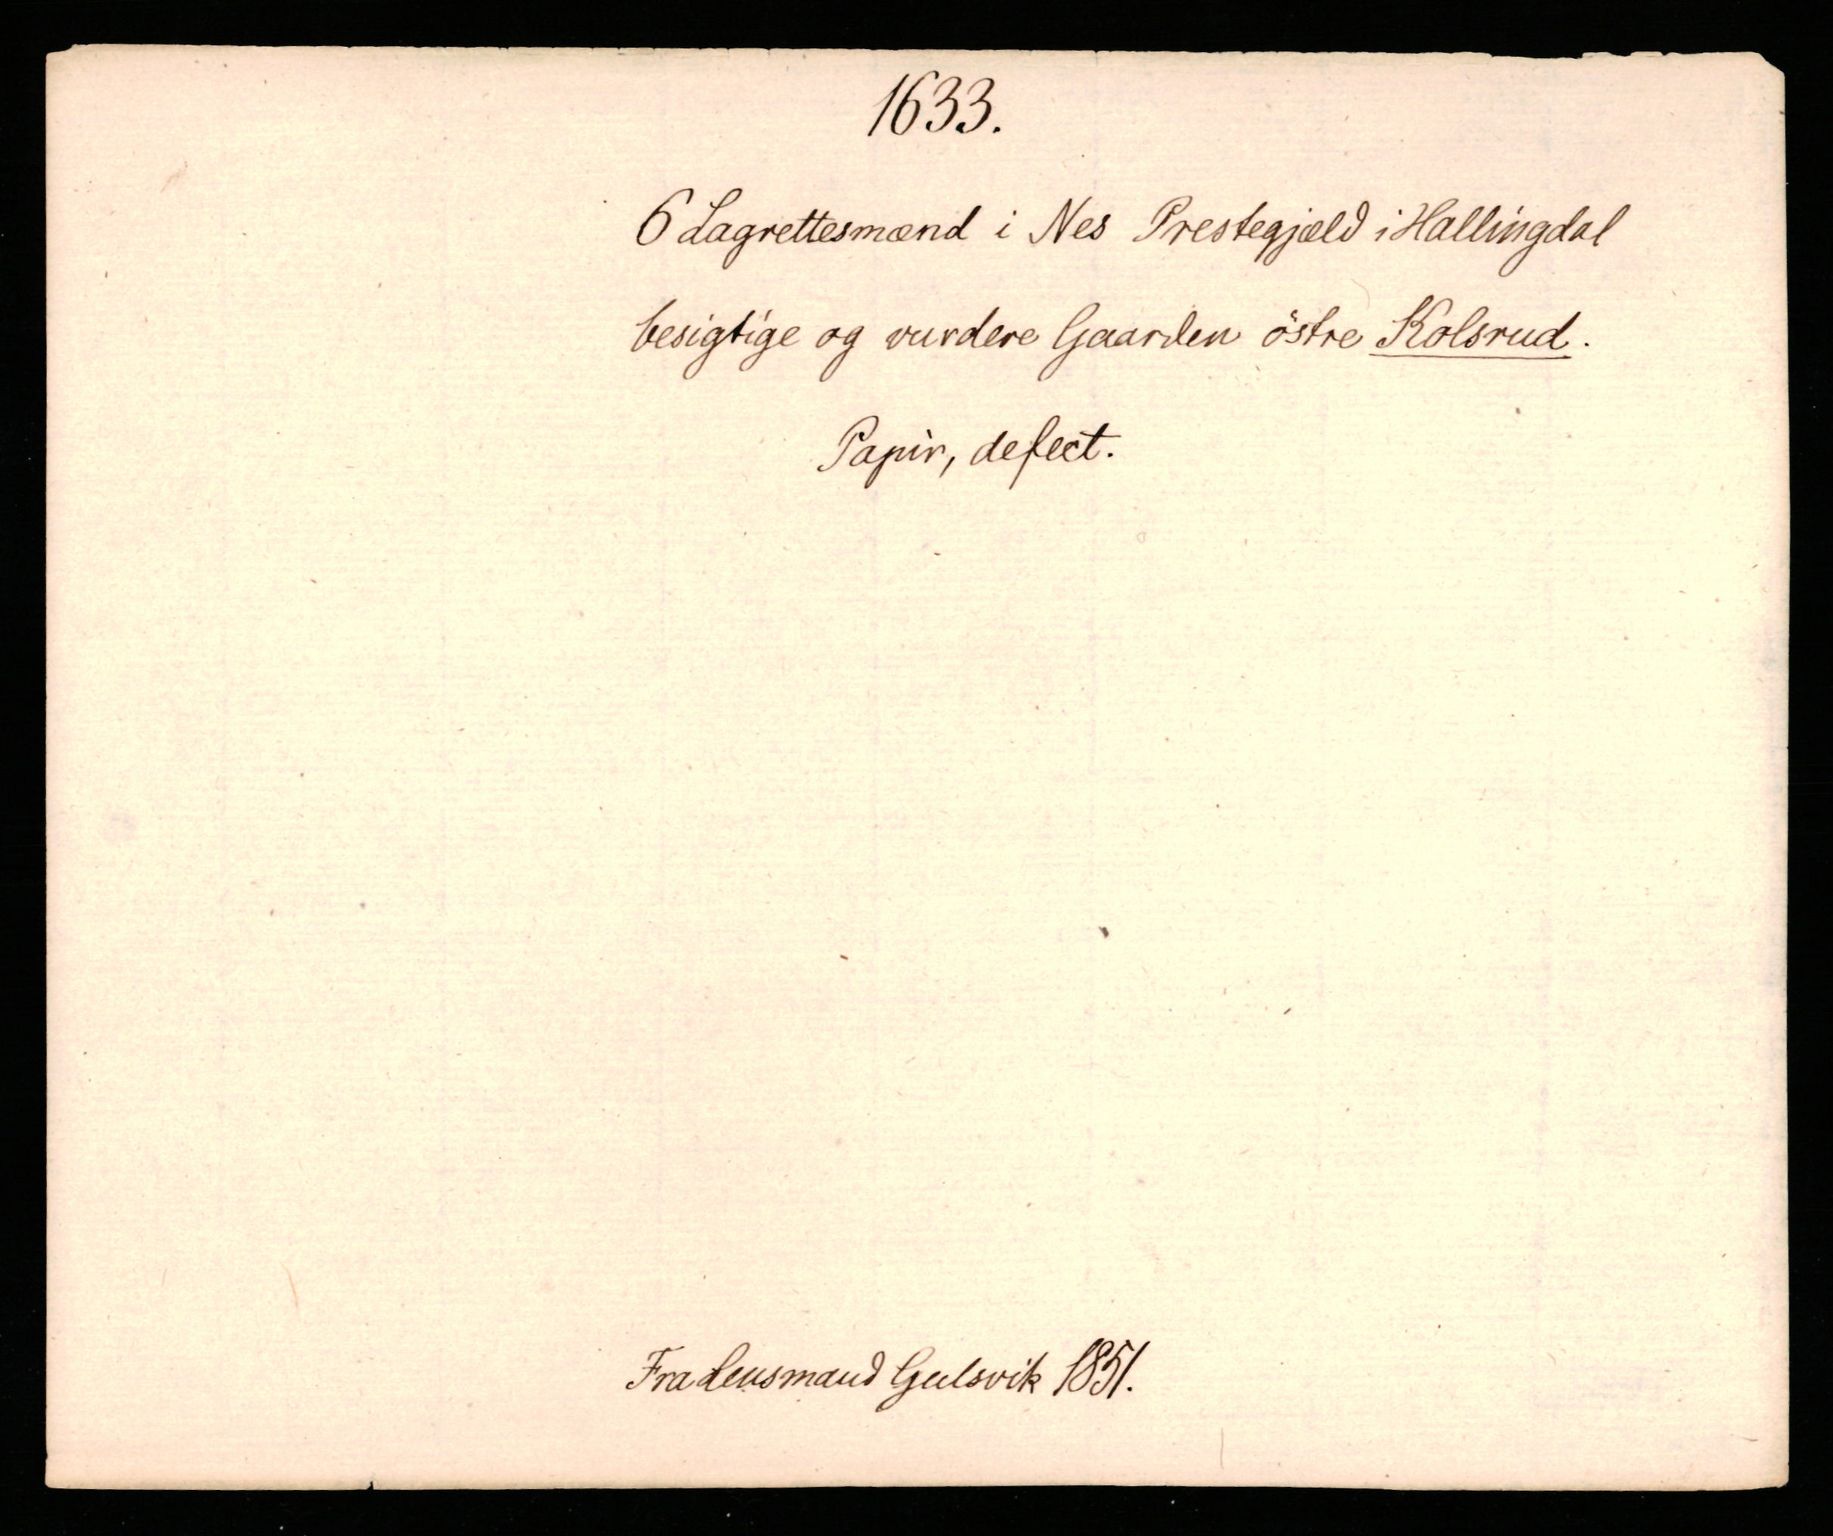 1633.
6 Lagrettesmænd i Nes Prestegjæld i Hallingdal
besigtige og vurdere Gaarden östre Kolsrud.
Papir, defect.
Fra Lensmand Gulsvik 1851.